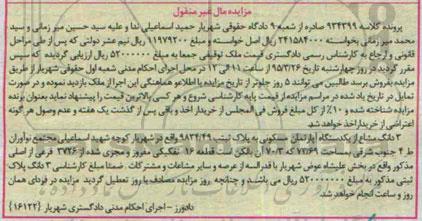 مزایده مال غیر منقول
پرونده کلاسه ۹۳۴۳۹۹ صادره از شعبه ۹ دادگاه حقوقی شهریار حمید اسماعیلی ندا و علیه سید حسین میر زمانی و سید
محمد میر زمانی بخواسته ۲۴۱۵۸۴۰۰۰ ریال اصل خواسته و مبلغ ۱۱۹۷۹۲۰۰ ریال نیم عشر دولتی که پس از طی مراحل
قانونی و ارجاع به کارشناس رسمی دادگستری قیمت ملک توقیفی جمعا به مبلغ ۵۲۰۰۰۰۰۰۰ ریال ارزیابی گردیده که سپس
مقرر گردید در روز چهارشنبه تاریخ ۹۵/۳/۲۶ از ساعت ۱۱ الی ۱۲ در محل اجرای احکام مدنی شعبه اول حقوقی شهریار از طریق
مزایده بفروش برسد طالبین می توانند ۵ روز جلوتر از تاریخ مزایده با اطلاع و هماهنگی این اجرا از ملک بازدید نموده و در صورت
تمایل در تاریخ یاد شده در مراسم مزایده از قیمت پایه کارشناسی شروع و هر کسی بالاترین قیمت را پیشنهاد نماید بعنوان برنده
مزایده شناخته شده و ۱۰٪ از کل مبلغ فروش فی المجلس از خریدار اخذ و باقی پس از گذشت یک هفته و عدم وصول هر گونه
اعتراض از خریدار اخذ خواهد شد.
۳ دانگ مشاع از یکدستگاه آپارتمان مسکونی به پلاک ثبتی ۹۸۳۴/۴۹ واقع در شهریار کوچه شهید اسماعیلی مجتمع نوآوران
ط ۴ جنوب شرقی بمساحت ۷۲/۶۹ که ۷۰/۳ آن بالکن است قطعه ۱۶ تفکیکی مفروز و مجزی شده از ۳۷۲۶ فرعی از اصلی
مذکور واقع در بخش علیشاه عوض شهریار با قدرالسهم از عرصه و سایر مشاعات و مشترکات ضمنا مبلغ کارشناسی ۳ دانگ پلاک
ثبتی مذکور به مبلغ ۵۲۰۰۰۰۰۰۰ ریال می باشد و چنانچه روز مزایده مصادف با روز تعطیل گردید مزایده در فردای همان
روز و ساعت انجام خواهد شد.
دادورز - اجرای احکام مدنی دادگستری شهریار {۱۶۱۲۲}